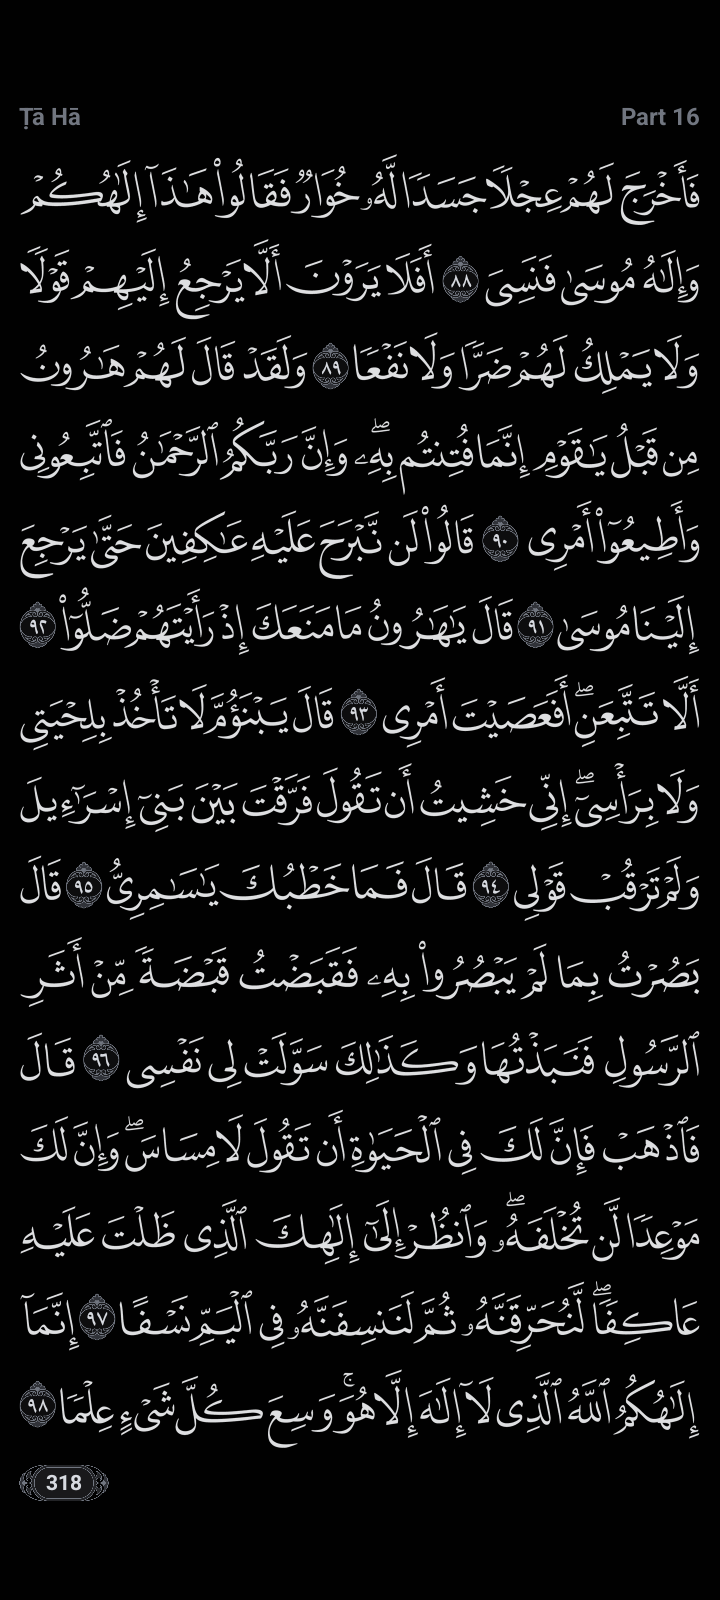 Ṭā Hā
Part 16
فَأَخْرَجَ لَهُمْ عِجْلًا جَسَدًا لَّهُۥ خُوَارٌ فَقَالُوا۟ هَـٰذَآ إِلَـٰهُكُمْ
وَإِلَـٰهُ مُوسَىٰ فَنَسِىَ ٨٨ أَفَلَا يَرَوْنَ أَلَّا يَرْجِعُ إِلَيْهِمْ قَوْلًا
وَلَا يَمْلِكُ لَهُمْ ضَرًّا وَلَا نَفْعًا ٨٩ وَلَقَدْ قَالَ لَهُمْ هَـٰرُونُ
مِن قَبْلُ يَـٰقَوْمِ إِنَّمَا فُتِنتُم بِهِۦ ۖ وَإِنَّ رَبَّكُمُ ٱلرَّحْمَـٰنُ فَٱتَّبِعُونِى
وَأَطِيعُوٓا۟ أَمْرِى ٩٠ قَالُوا۟ لَن نَّبْرَحَ عَلَيْهِ عَـٰكِفِينَ حَتَّىٰ يَرْجِعَ
إِلَيْنَا مُوسَىٰ ٩١ قَالَ يَـٰهَـٰرُونُ مَا مَنَعَكَ إِذْ رَأَيْتَهُمْ ضَلُّوٓا۟ ٩٢
أَلَّا تَتَّبِعَنِ ۖ أَفَعَصَيْتَ أَمْرِى ٩٣ قَالَ يَبْنَؤُمَّ لَا تَأْخُذْ بِلِحْيَتِى
وَلَا بِرَأْسِىٓ ۖ إِنِّى خَشِيتُ أَن تَقُولَ فَرَّقْتَ بَيْنَ بَنِىٓ إِسْرَٰٓءِيلَ
وَلَمْ تَرْقُبْ قَوْلِى ٩٤ قَالَ فَمَا خَطْبُكَ يَـٰسَـٰمِرِىُّ ٩٥ قَالَ
بَصُرْتُ بِمَا لَمْ يَبْصُرُوا۟ بِهِۦ فَقَبَضْتُ قَبْضَةً مِّنْ أَثَرِ
ٱلرَّسُولِ فَنَبَذْتُهَا وَكَذَٰلِكَ سَوَّلَتْ لِى نَفْسِى ٩٦ قَالَ
فَٱذْهَبْ فَإِنَّ لَكَ فِى ٱلْحَيَوٰةِ أَن تَقُولَ لَا مِسَاسَ ۖ وَإِنَّ لَكَ
مَوْعِدًا لَّن تُخْلَفَهُۥ ۖ وَٱنظُرْ إِلَىٰٓ إِلَـٰهِكَ ٱلَّذِى ظَلْتَ عَلَيْهِ
عَاكِفًا ۖ لَّنُحَرِّقَنَّهُۥ ثُمَّ لَنَنسِفَنَّهُۥ فِى ٱلْيَمِّ نَسْفًا ٩٧ إِنَّمَآ
إِلَـٰهُكُمُ ٱللَّهُ ٱلَّذِى لَآ إِلَـٰهَ إِلَّا هُوَ ۚ وَسِعَ كُلَّ شَىْءٍ عِلْمًا ٩٨
318